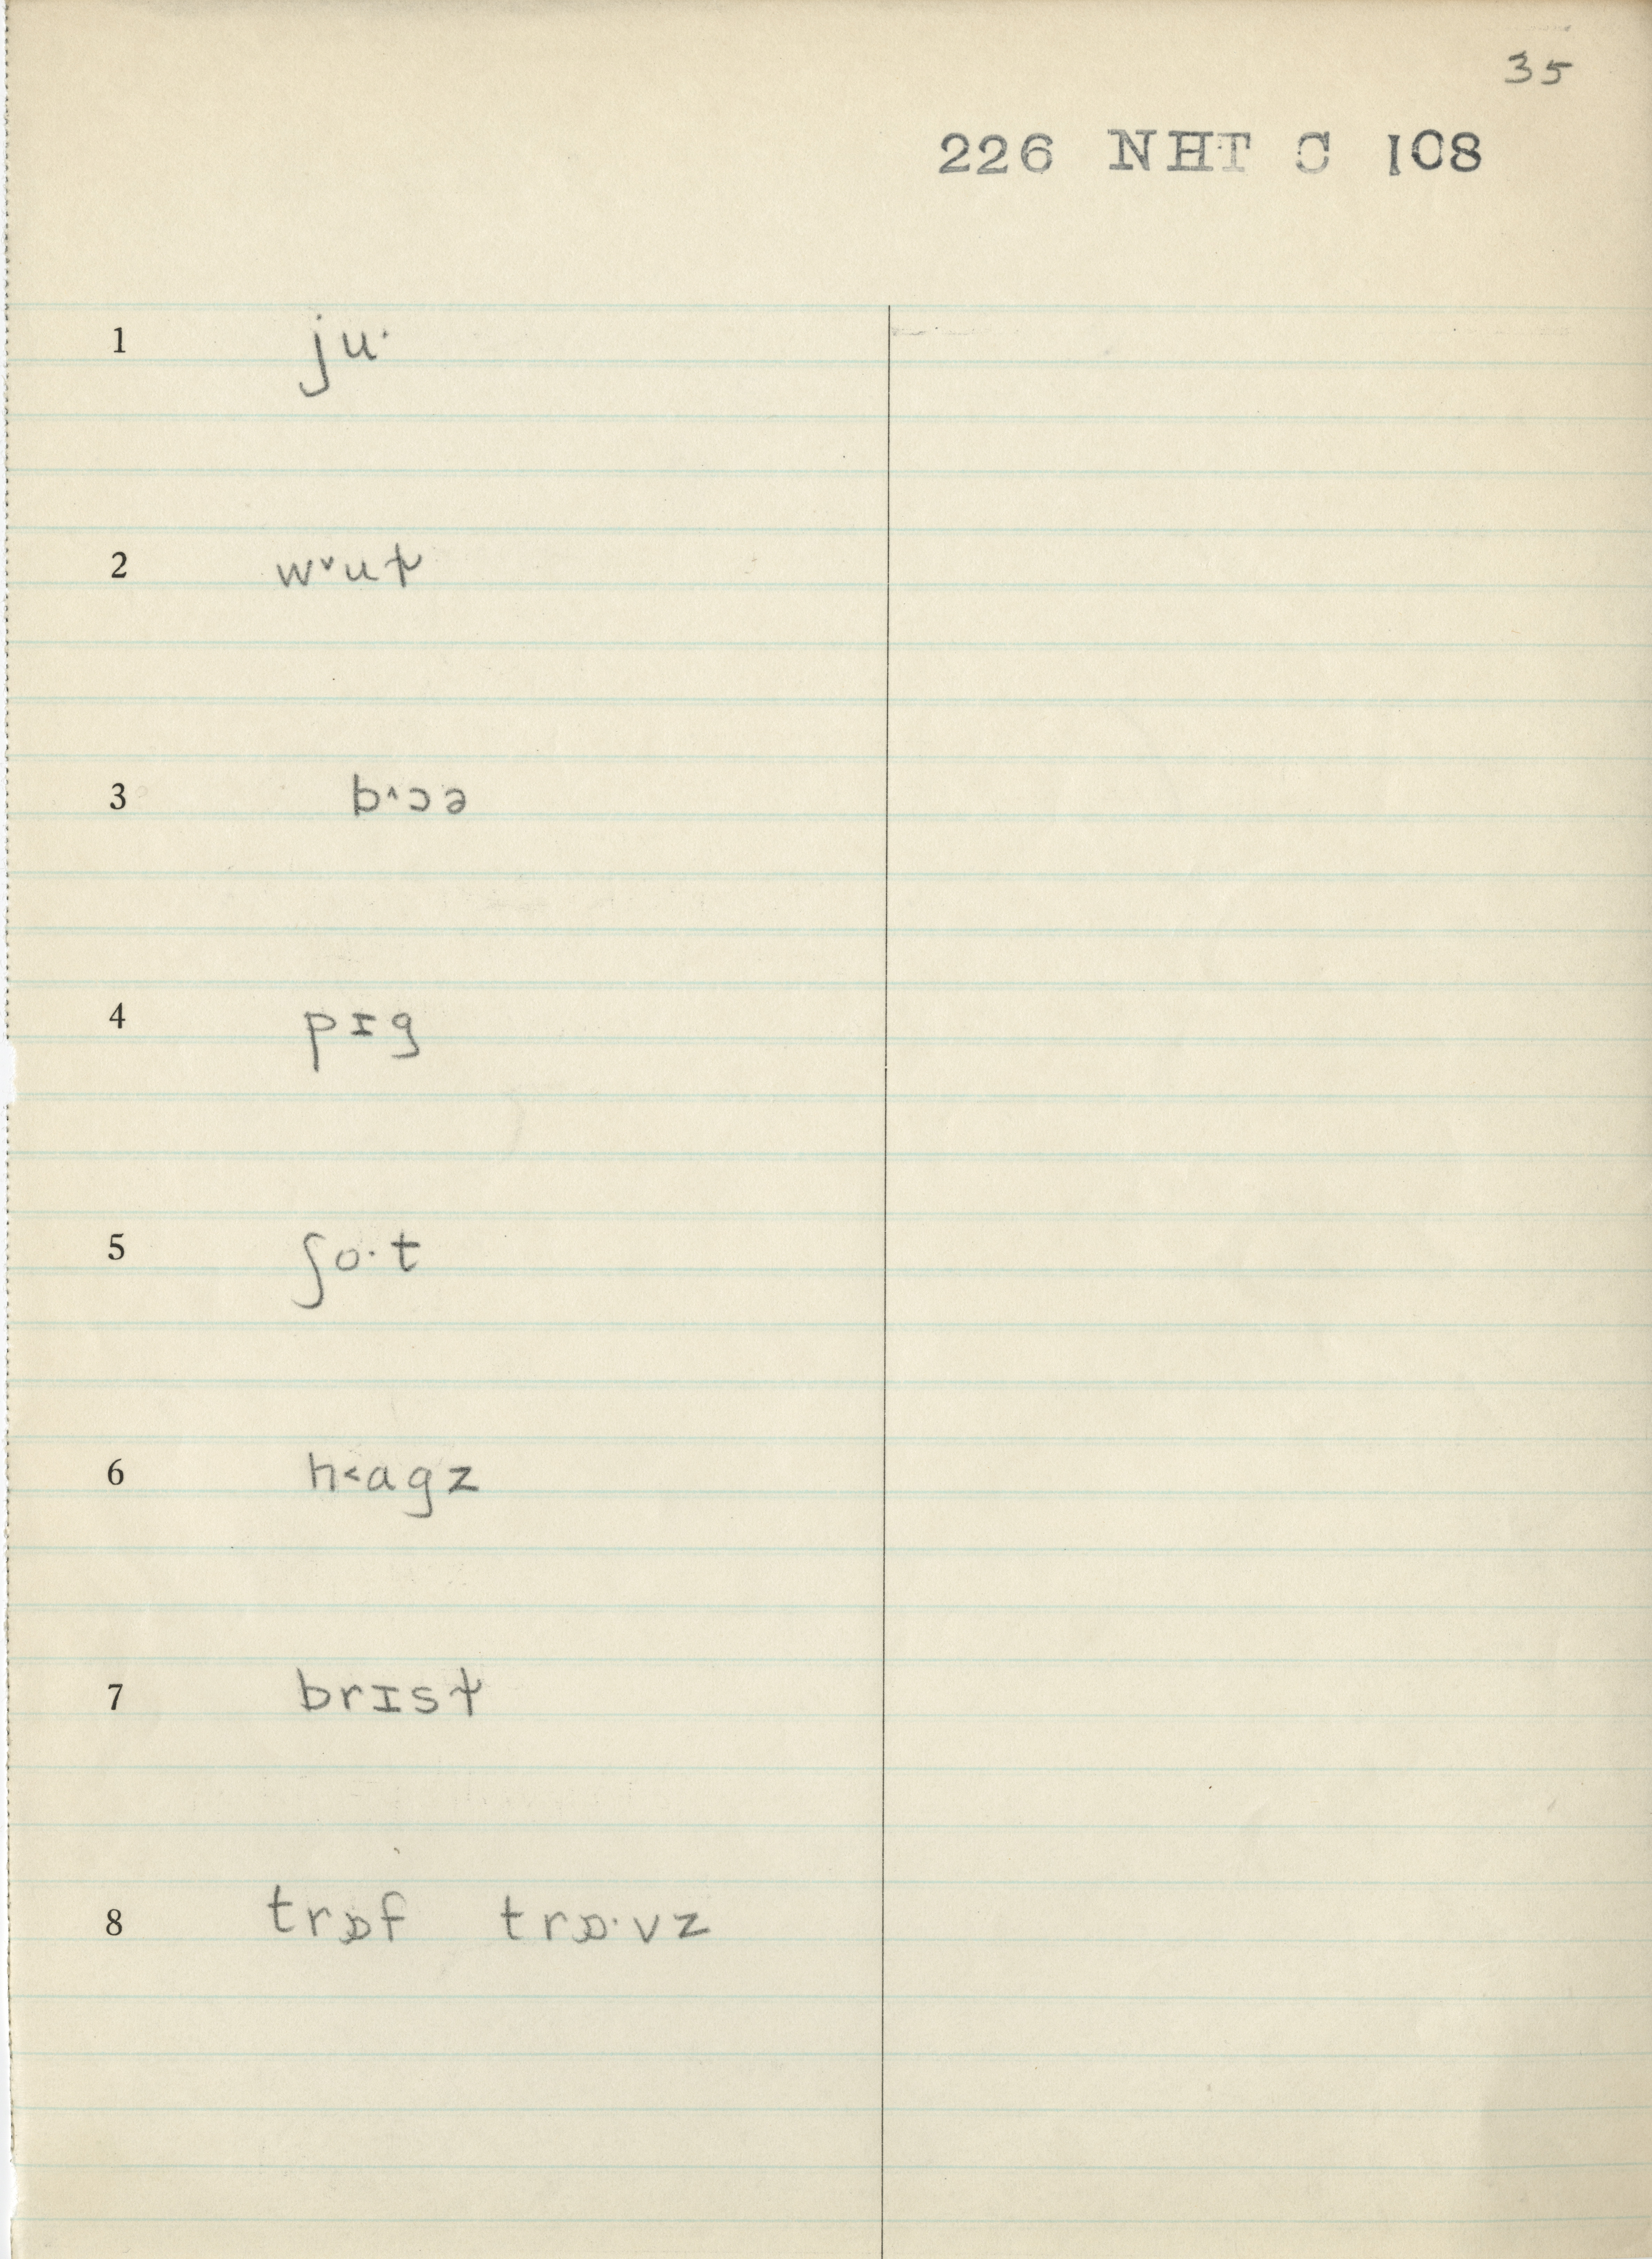 35
226 NHT C 108
1 ju·
2 w˅uƫ
3 b˄ɔə
4 pɪg
5 ʃo·t
6 h˂agz
7 brɪsƫ
8 trɒf trɒ·vz